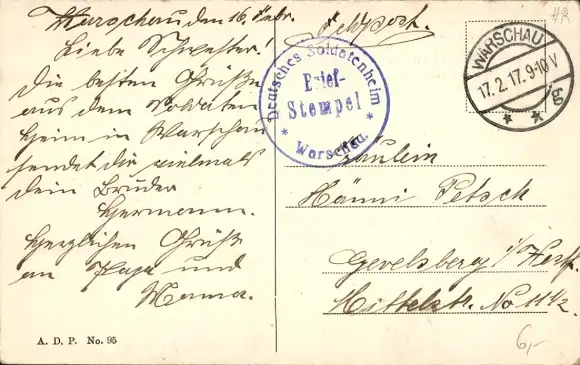 Warschau den 16. Febr.
Liebe Schwester!
Die besten Grüße
aus dem Soldaten
heim in Warschau
sendet dir vielmals
dein Bruder
Hermann.
Herzlichen Gruß
an Papa und
Mama.
A. D. P. No. 95
Feldpost.
Deutsches Soldatenheim
Brief-
Stempel
* Warschau. *
WARSCHAU
17.2.17.9-10V
* * b9
Fräulein
Hänni Petsch
Gevelsberg i/Westf.
Mittelstr. No 11½.
6,-